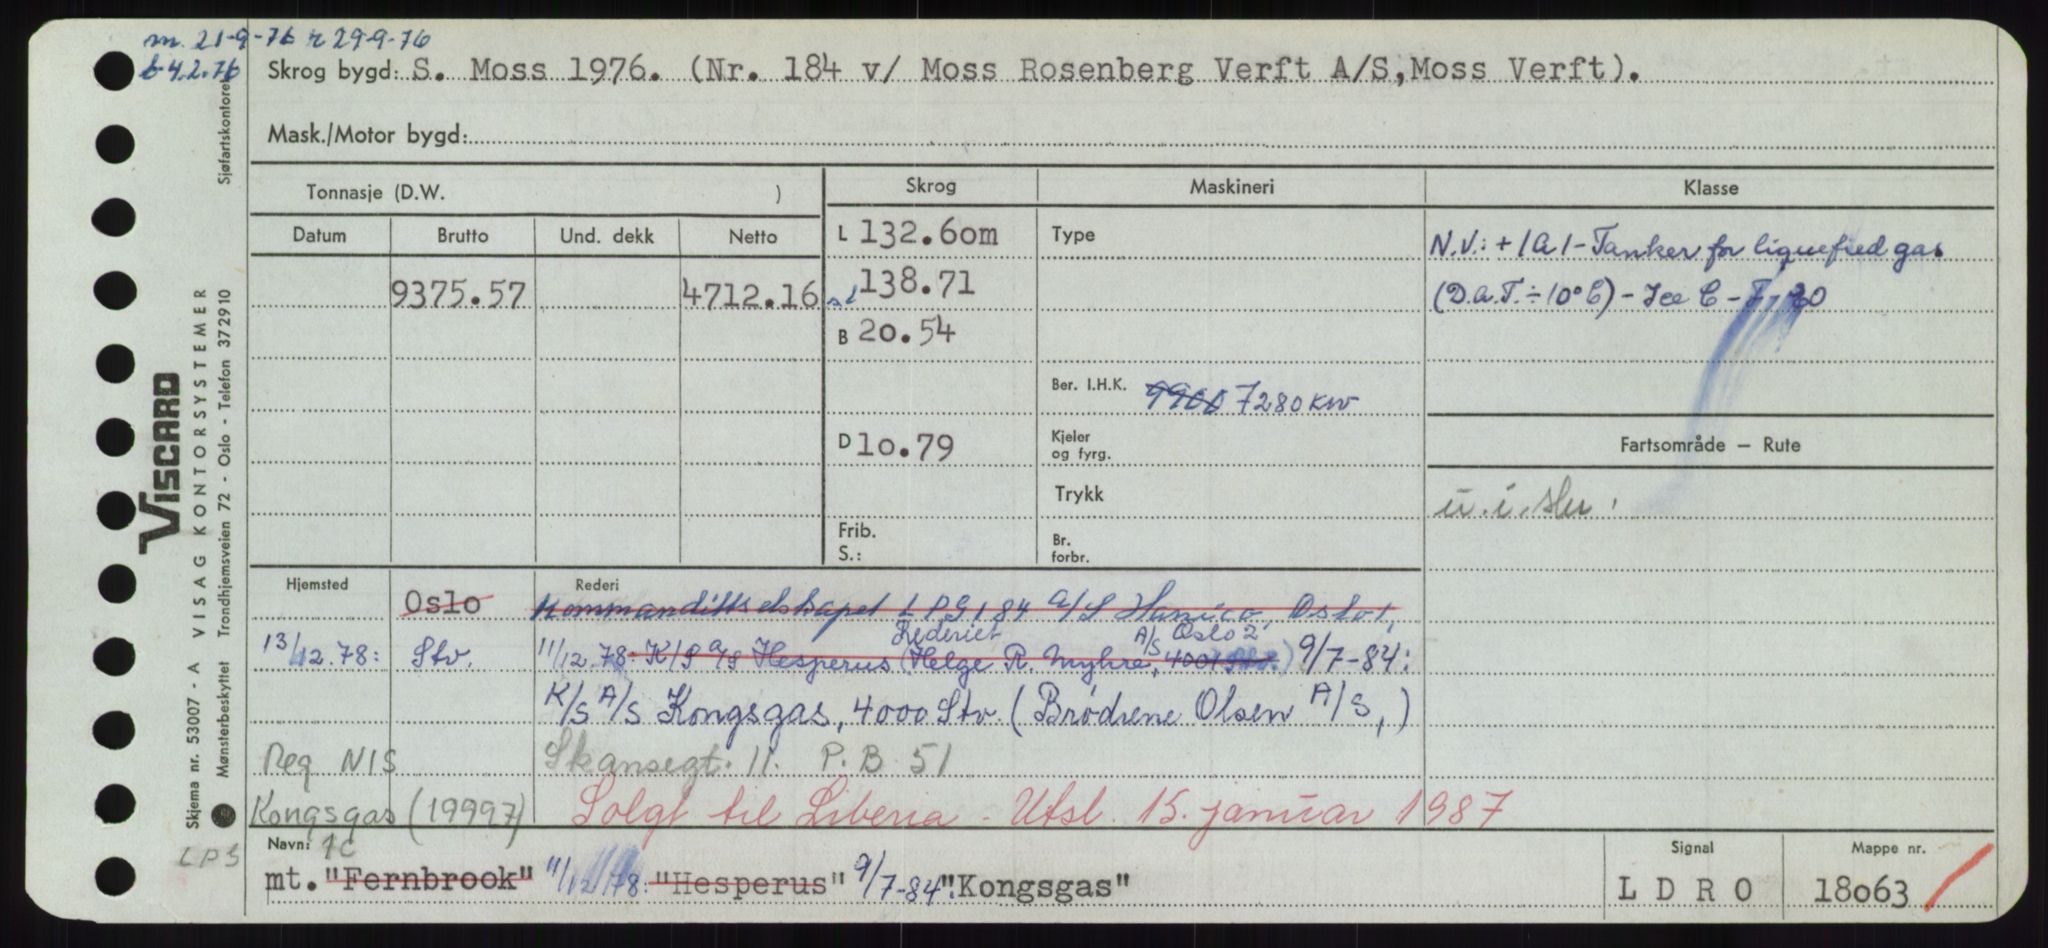 m. 21-9-76 r 29-9-76
b 4.2.76
Skrog bygd: S. Moss 1976. (Nr. 184 v/ Moss Rosenberg Verft A/S, Moss Verft).
Mask./Motor bygd:
Tonnasje (D.W. )
Skrog
Maskineri
Klasse
Datum
Brutto
Und. dekk
Netto
9375.57
4712.16
L 132.6om
sl 138.71
B 2o.54
D 1o.79
Frib.
S.:
Type
Ber. I.H.K. 9900 7280 kw
Kjeler
og fyrg.
Trykk
Br.
forbr.
N.V.: + 1A1 - Tanker for liquefied gas
(D.a.T. ÷ 10° C) - Ice C - F
Fartsområde — Rute
Hjemsted
Oslo
13/12.78: Stv.
Rederi
Kommandittselskapet LPG 184 A/S Hanico, Oslo 1,
Rederiet A/S Oslo 2
11/12.78: K/S A/S Hesperus (Helge R. Myhre, 4001 Stv.) 9/7-84:
K/S A/S Kongsgas, 4000 Stv. (Brødrene Olsen A/S,)
Reg NIS
Skansegt. 11. P.B 51
Kongsgas (19997)
Solgt til Liberia - Utsl. 15. januar 1987
Navn:
mt. "Fernbrook" 11/12 78: "Hesperus" 9/7-84: "Kongsgas"
Signal
L D R O
Mappe nr.
18o63
Sjøfartskontoret
VISCARD
Skjema nr. 53007 - A VISAG KONTORSYSTEMER
Mønsterbeskyttet Trondhjemsveien 72 - Oslo - Telefon 372910